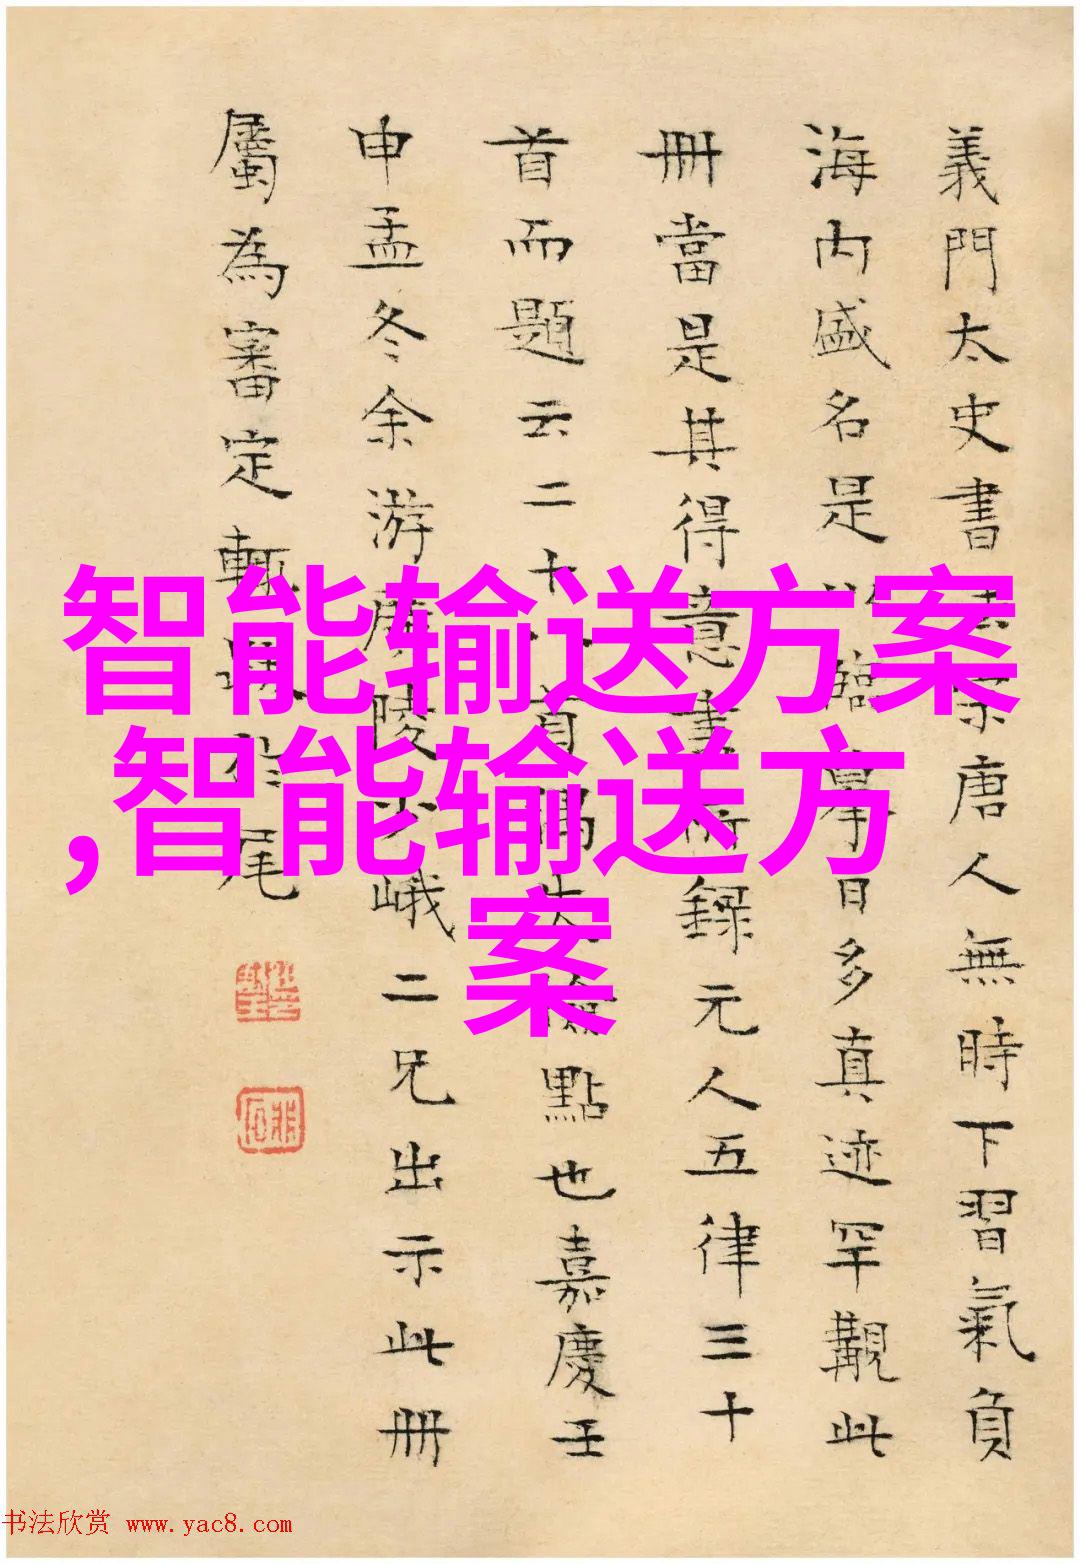 義門太史書法宗唐人無時下習氣負
海内盛名是以臨摹日多真迹罕覯此
冊當是其得意書所録元人五律三十
首而題云二十首偶失檢點也嘉慶壬
申孟冬余游廣陵少峨二兄出示此冊
屬為審定輒跋於尾
智能输送方案
,智能输送方
案
书法欣赏 www.yac8.com